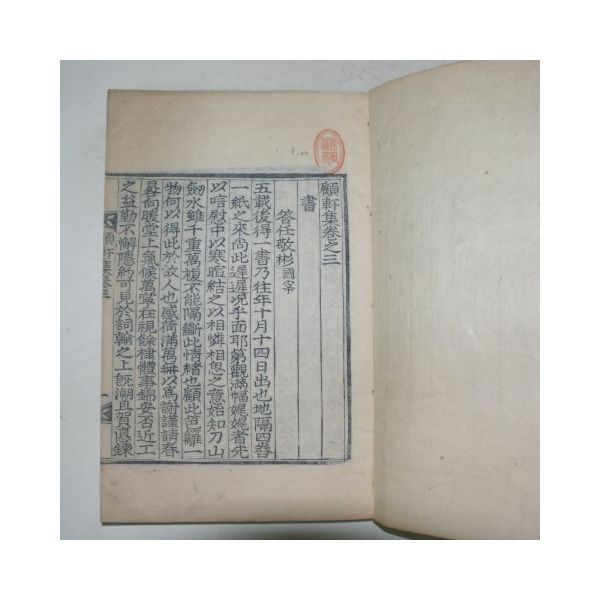 顧軒集卷之三
書
答任敬彬國宰
五載後得一書乃往年十月十四日出也地隔四朞
一紙之來尚此遲遲况乎面耶第觀滿幅娓娓者先
以唁慰中以寒暄結之以相憐相思之意始知刀山
劒水雖千重萬複不能隔斷此情緒也顧此笛雛一
物何以得此於故人也感荷滿萬無以爲謝謹請春
晷向暖堂上氣候萬寧在視餘棣體事錦安否近工
之益勤不懈隱約可見於詞翰之上旣溯且賀眞鍊
顧軒集卷三
一